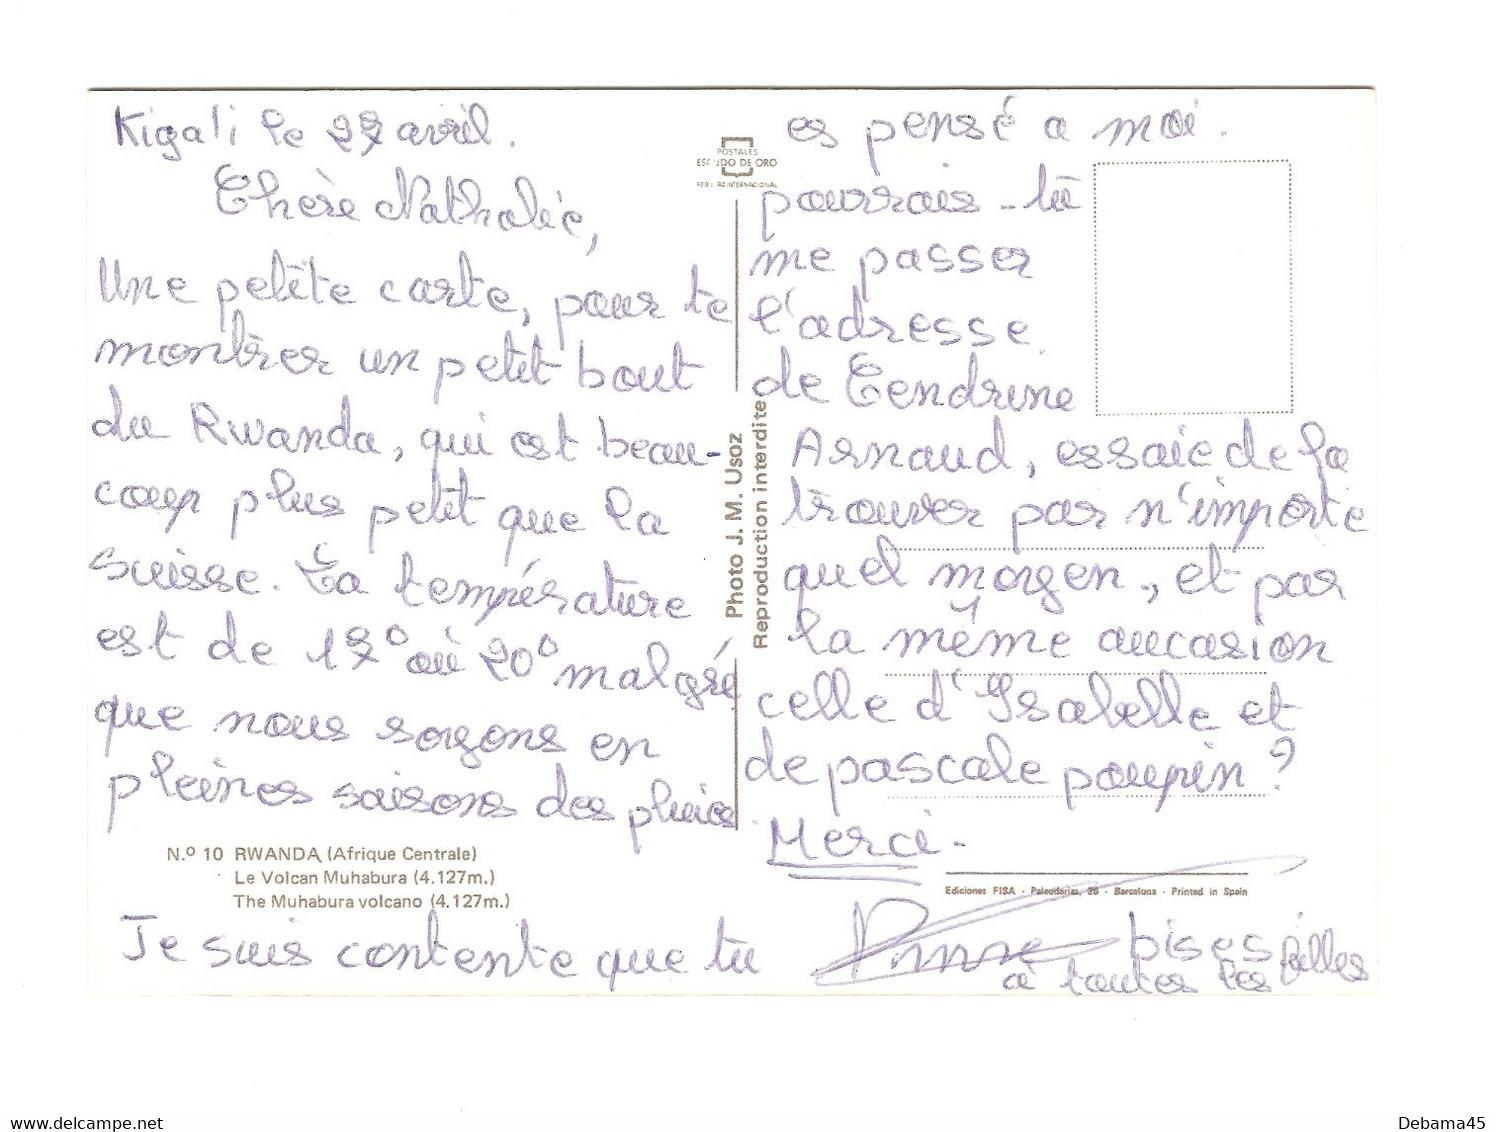 Kigali le 27 avril.
Chère Nathalie,
Une petite carte, pour te
montrer un petit bout
du Rwanda, qui est beau-
coup plus petit que la
suisse. La température
est de 17° où 20° malgré
que nous soyons en
pleines saisons des pluies.
N.º 10 RWANDA (Afrique Centrale)
Le Volcan Muhabura (4.127m.)
The Muhabura volcano (4.127m.)
Je suis contente que tu
POSTALES
ESCUDO DE ORO
Photo J. M. Usoz
Reproduction interdite
es pensé a moi.
pourrais-tu
me passer
l'adresse
de
Arnaud, essaie de la
trouver par n'importe
quel moyen, et par
la même aucasion
celle d'Isabelle et
de pascale poupin?
Merci-
Ediciones FISA - Palaudarias, 26 - Barcelona - Printed in Spain
bises
à toutes les filles
Delcampe.net
Debama45